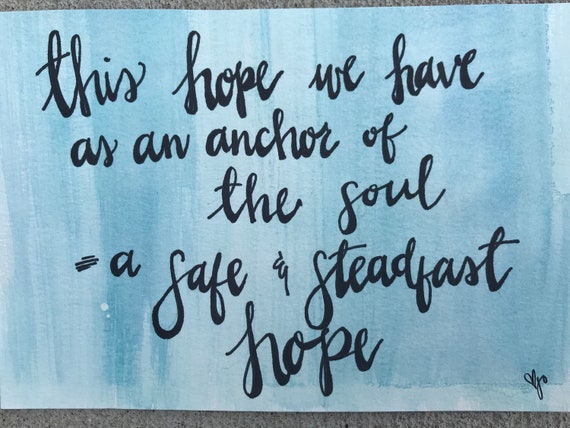 this hope we have
as an anchor of
the soul
= a safe & steadfast
hope